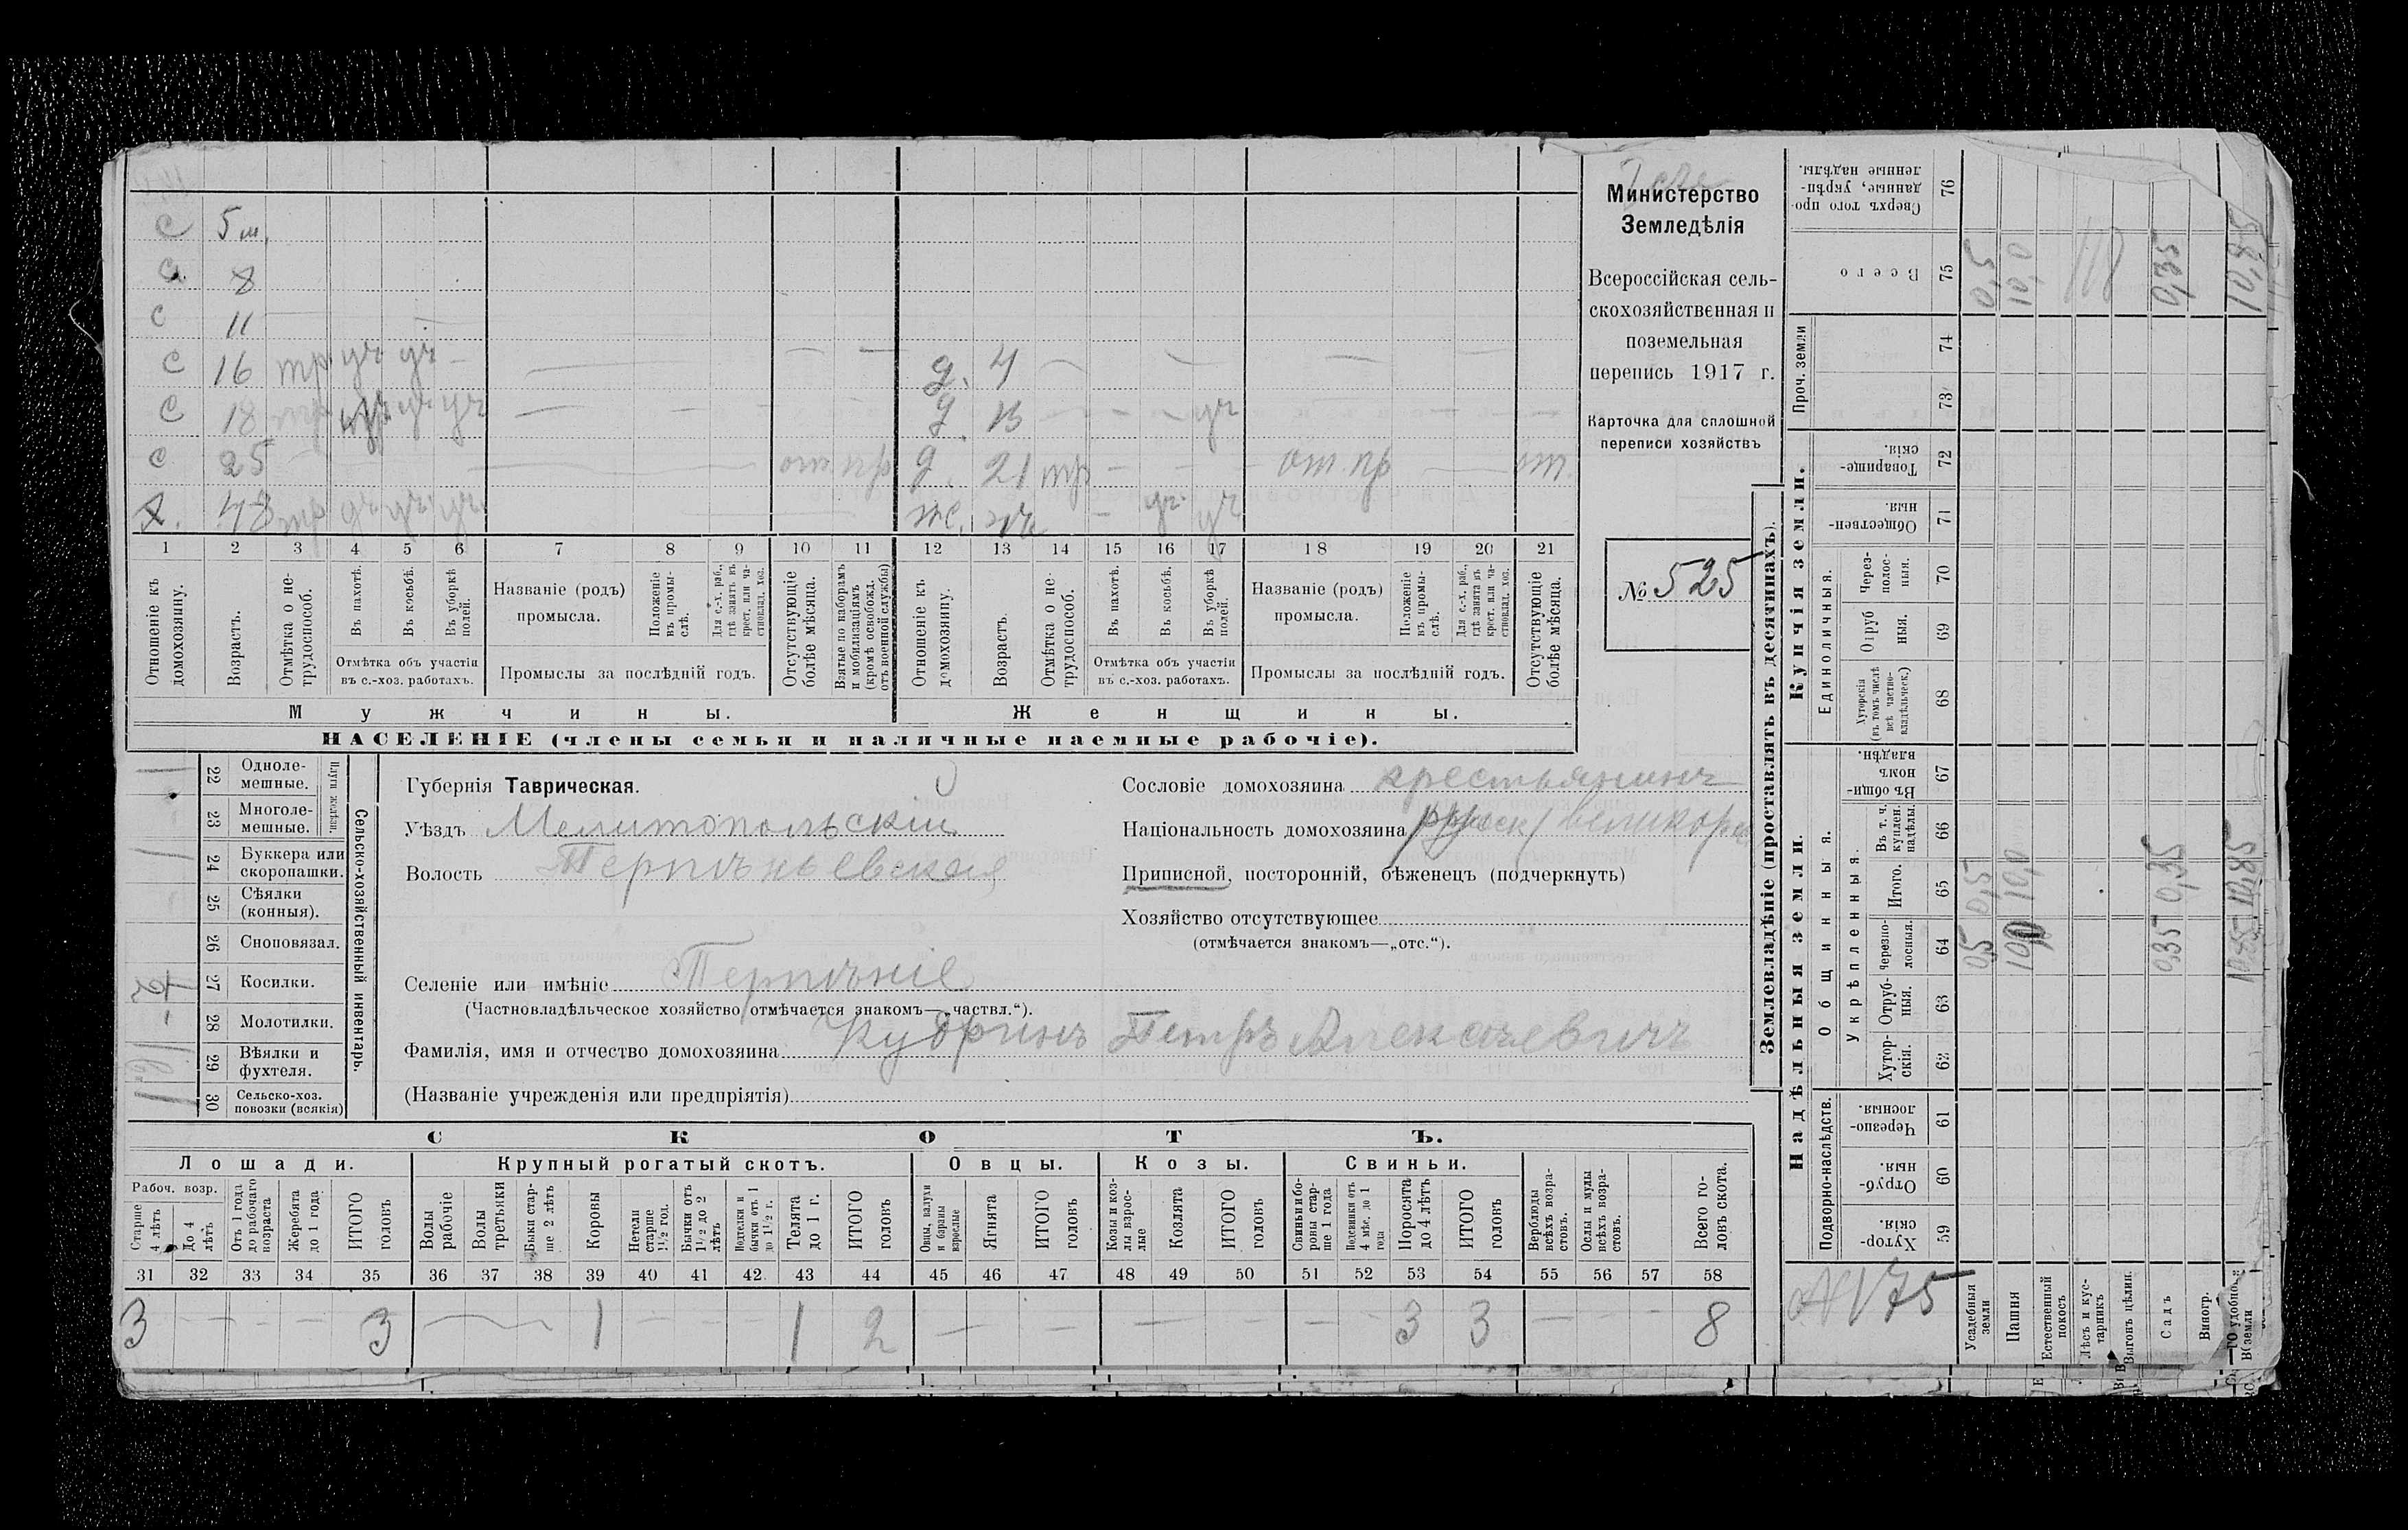 С 5 м.
С 8
С 11
С 16 тр уч уч
д. 4
С 18 тр уч уч
д. 13 уч
С 25 отп пр
д. 21 тр от. пр от.
Х. 43 тр уч уч уч
ж. уч уч
1 2 3 4 5 6 7 8 9 10 11 12 13 14 15 16 17 18 19 20 21
Отношеніе къ домохозяину.
Возрастъ.
Отмѣтка о нетрудоспособ.
Въ пахотѣ.
Въ косьбѣ.
Въ уборкѣ полей.
Отмѣтка объ участіи въ с.-хоз. работахъ.
Названіе (родъ) промысла.
Положеніе въ промыслѣ.
Для с.-х. раб., гдѣ занятъ въ крест. или частновлад. хоз.
Промыслы за послѣдній годъ.
Отсутствующіе болѣе мѣсяца.
Взятые по наборамъ и мобилизаціямъ (кромѣ освобожд. отъ военной службы)
Отношеніе къ домохозяину.
Возрастъ.
Отмѣтка о нетрудоспособ.
Въ пахотѣ.
Въ косьбѣ.
Въ уборкѣ полей.
Отмѣтка объ участіи въ с.-хоз. работахъ.
Названіе (родъ) промысла.
Положеніе въ промыслѣ.
Для с.-х. раб., гдѣ занята въ крест. или частновлад. хоз.
Промыслы за послѣдній годъ.
Отсутствующіе болѣе мѣсяца.
Мужчины.
Женщины.
НАСЕЛЕНІЕ (члены семьи и наличные наемные рабочіе).
Министерство
Земледѣлія
Всероссійская сель-
скохозяйственная и
поземельная
перепись 1917 г.
Карточка для сплошной
переписи хозяйствъ
№ 525
Сельско-хозяйственный инвентарь.
Плуги желѣзн.
22 Однолемешные.
23 Многолемешные.
24 Буккера или скоропашки.
25 Сѣялки (конныя).
26 Сноповязал.
27 Косилки.
28 Молотилки.
29 Вѣялки и фухтеля.
30 Сельско-хоз. повозки (всякія)
Губернія Таврическая.
Уѣздъ Мелитопольскій
Волость Терпѣньевская
Селеніе или имѣніе Терпѣніе
(Частновладѣльческое хозяйство отмѣчается знакомъ—„частвл.“).
Фамилія, имя и отчество домохозяина Кудринъ Петръ Алексѣевичъ
(Названіе учрежденія или предпріятія)
Сословіе домохозяина крестьянинъ
Національность домохозяина русск / великор
Приписной, посторонній, бѣженецъ (подчеркнуть)
Хозяйство отсутствующее
(отмѣчается знакомъ—„отс.“).
СКОТЪ.
Лошади. Крупный рогатый скотъ. Овцы. Козы. Свиньи.
Рабоч. возр.
Старше 4 лѣтъ
До 4 лѣтъ
Отъ 1 года до рабочаго возраста
Жеребята до 1 года
ИТОГО головъ
Волы рабочіе
Волы третьяки
Быки старше 2 лѣтъ
Коровы
Нетели старше 1 1/2 год.
Бычки отъ 1 1/2 до 2 лѣтъ
Подтелки и бычки отъ 1 до 1 1/2 г.
Телята до 1 г.
ИТОГО головъ
Овцы, валухи и бараны взрослые
Ягнята
ИТОГО головъ
Козы и козлы взрослые
Козлята
ИТОГО головъ
Свиньи и бороны старше 1 года
Подсвинки отъ 4 мѣс. до 1 года
Поросята до 4 лѣтъ
ИТОГО головъ
Верблюды всѣхъ возрастовъ.
Ослы и мулы всѣхъ возрастовъ.
Всего головъ скота.
31 32 33 34 35 36 37 38 39 40 41 42 43 44 45 46 47 48 49 50 51 52 53 54 55 56 57 58
3 - - - 3 1 - - - 1 2 - - - - - - 3 3 - - - 8
Землевладѣніе (проставлять въ десятинахъ).
Надѣльныя земли.
Купчія земли.
Проч. земли
Подворно-наслѣдств.
Общинныя.
Укрѣпленныя.
Единоличныя.
Хуторскія. 59
Отрубныя. 60
Черезполосныя. 61
Хуторскія. 62
Отрубныя. 63
Черезполосныя. 64
Итого. 65
Въ т. ч. куплен. надѣлы. 66
Въ общинномъ владѣн. 67
Хуторскія (въ томъ числѣ всѣ частновладѣльческ.) 68
Отрубныя. 69
Черезполосныя. 70
Общественныя. 71
Товарищескія. 72
73
74
Всего 75
Сверхъ того проданные, укрѣпленные надѣлы. 76
Усадебныя земли 0,5 0,5 0,5
Пашня 10,0 10,0
Естественный покосъ
Лѣсъ и кустарникъ
Выгонъ цѣлин.
Садъ 0,35 0,35 0,35
Виногр.
10,85 10,85 10,85